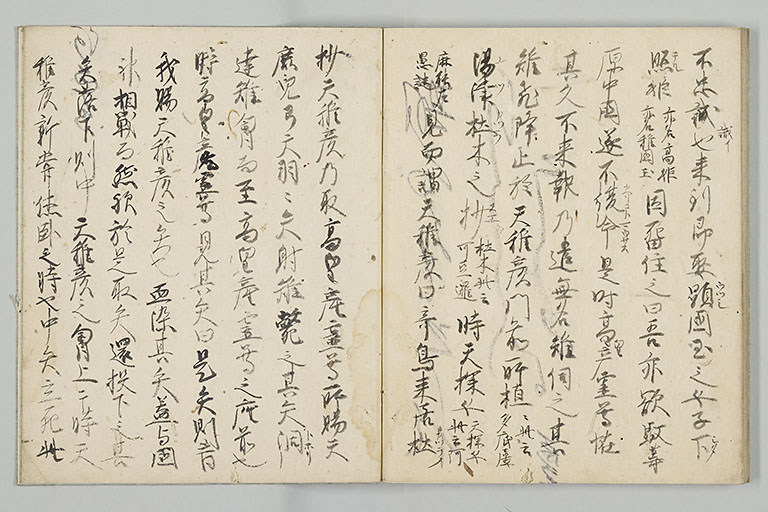 不忠誠也来到即娶顕国玉之女子下
照姫亦名高姫亦名稚国玉因留住之曰吾亦欲馭葦
原中国遂不復命是時高皇産霊尊怪
其久不来報乃遣無名雉伺之其
雉飛降止於天稚彦門前所植植此云多底屢
湯津杜木之杪杜木此云可豆邏時天探女天探女此云阿
麻能左愚謎見而謂天稚彦曰奇鳥来居杜
杪天稚彦乃取高皇産霊尊所賜天
鹿児弓天羽々矢射雉斃之其矢洞
達雉胸而至高皇産霊尊之座前也
時高皇産霊尊見其矢曰是矢則昔
我賜天稚彦之矢也血染其矢蓋与国
神相戦而然歟於是取矢還投下之其
矢落下則中天稚彦之胸上于時天
稚彦新嘗休臥之時也中矢立死此